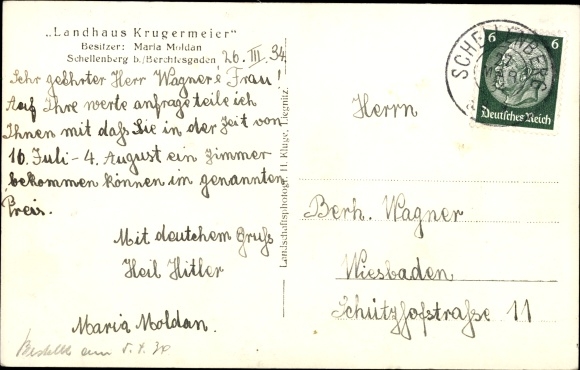 „Landhaus Krugermeier"
Besitzer: Maria Moldan
Schellenberg b./Berchtesgaden
26. III. 34
Sehr geehrter Herr Wagner & Frau!
Auf Ihre werte anfrage teile ich
Ihnen mit daß Sie in der Zeit von
16. Juli - 4. August ein Zimmer
bekommen können im genannten
Preis.
Mit deutchem Gruß
Heil Hitler
Maria Moldan.
Bestellt am 5. 4. 34
Landschaftsphotogr. H. Kluge, Liegnitz.
SCHELLENBERG
27
6 6
Deutsches Reich
Herrn
Berh. Wagner
Wiesbaden
Schützhofstraße 11